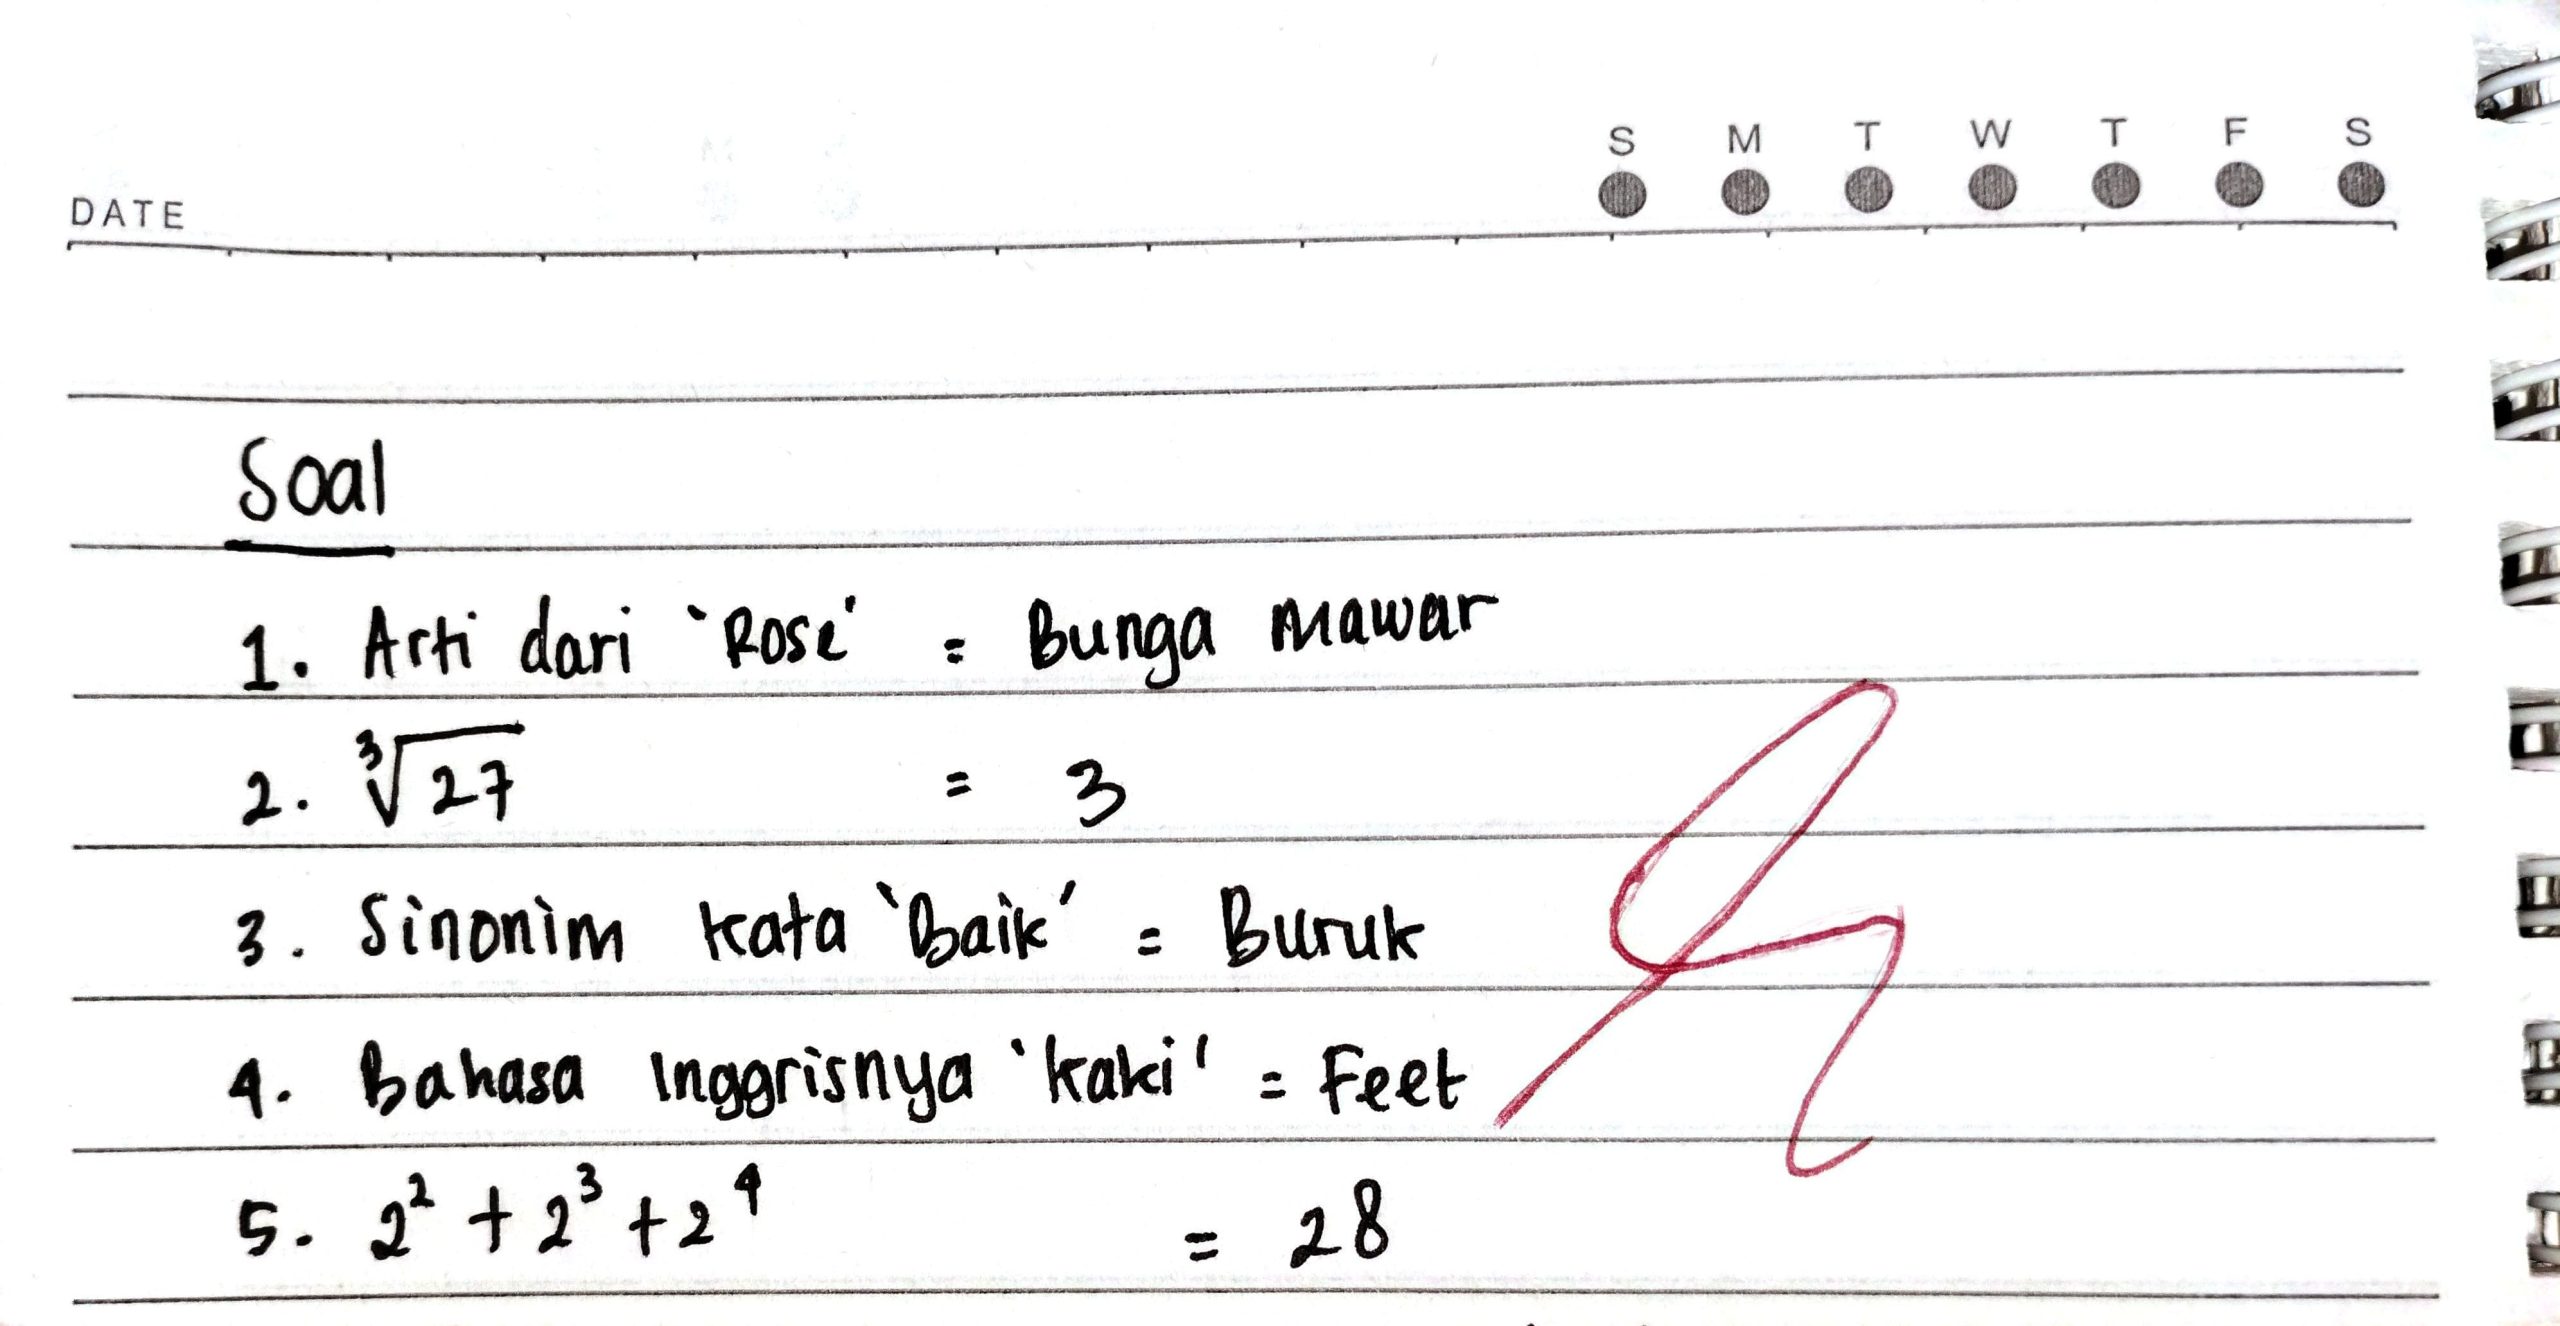 S M T W T F S
DATE
Soal
1. Arti dari 'Rose' = Bunga Mawar
2. ∛27 = 3
3. Sinonim kata 'Baik' = Buruk
4. Bahasa Inggrisnya 'kaki' = Feet
5. 2² + 2³ + 2⁴ = 28